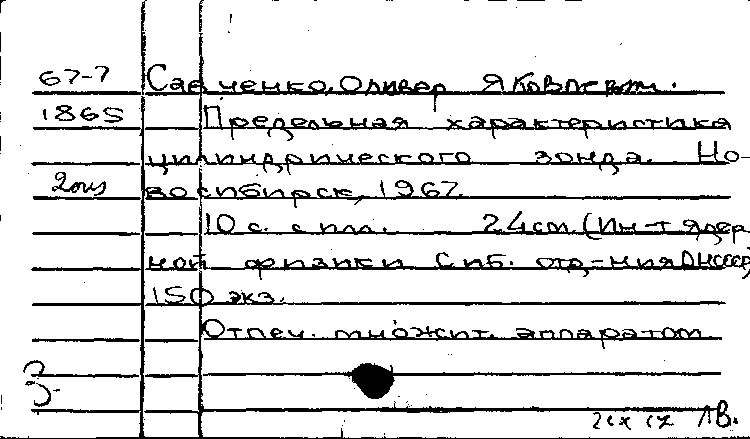 67-7 Савченко, Оливер Яковлевич.
1865 Предельная характеристика
цилиндрического зонда. Но-
2 экз восибирск, 1967.
10 с. с илл. 24 см. (Ин-т ядер
ной физики Сиб. отд-ния АН СССР)
150 экз.
Отпеч. множит. аппаратом